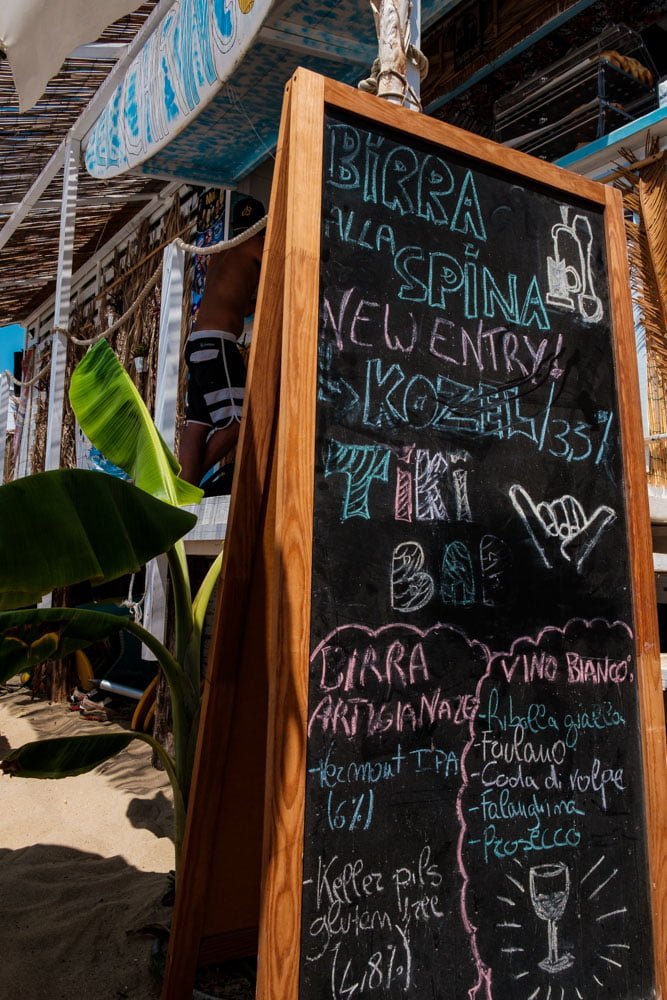 BIRRA
ALLA
SPINA
NEW ENTRY!
→ KOZEL/3,5%
TIKI
BAR
BIRRA
ARTIGIANALE
-Vermont IPA
(6%)
-Keller pils
glutem free
(4,8%)
VINO BIANCO:
-Ribolla gialla
-Foulano
-Coda di volpe
-Falanghina
-Prosecco